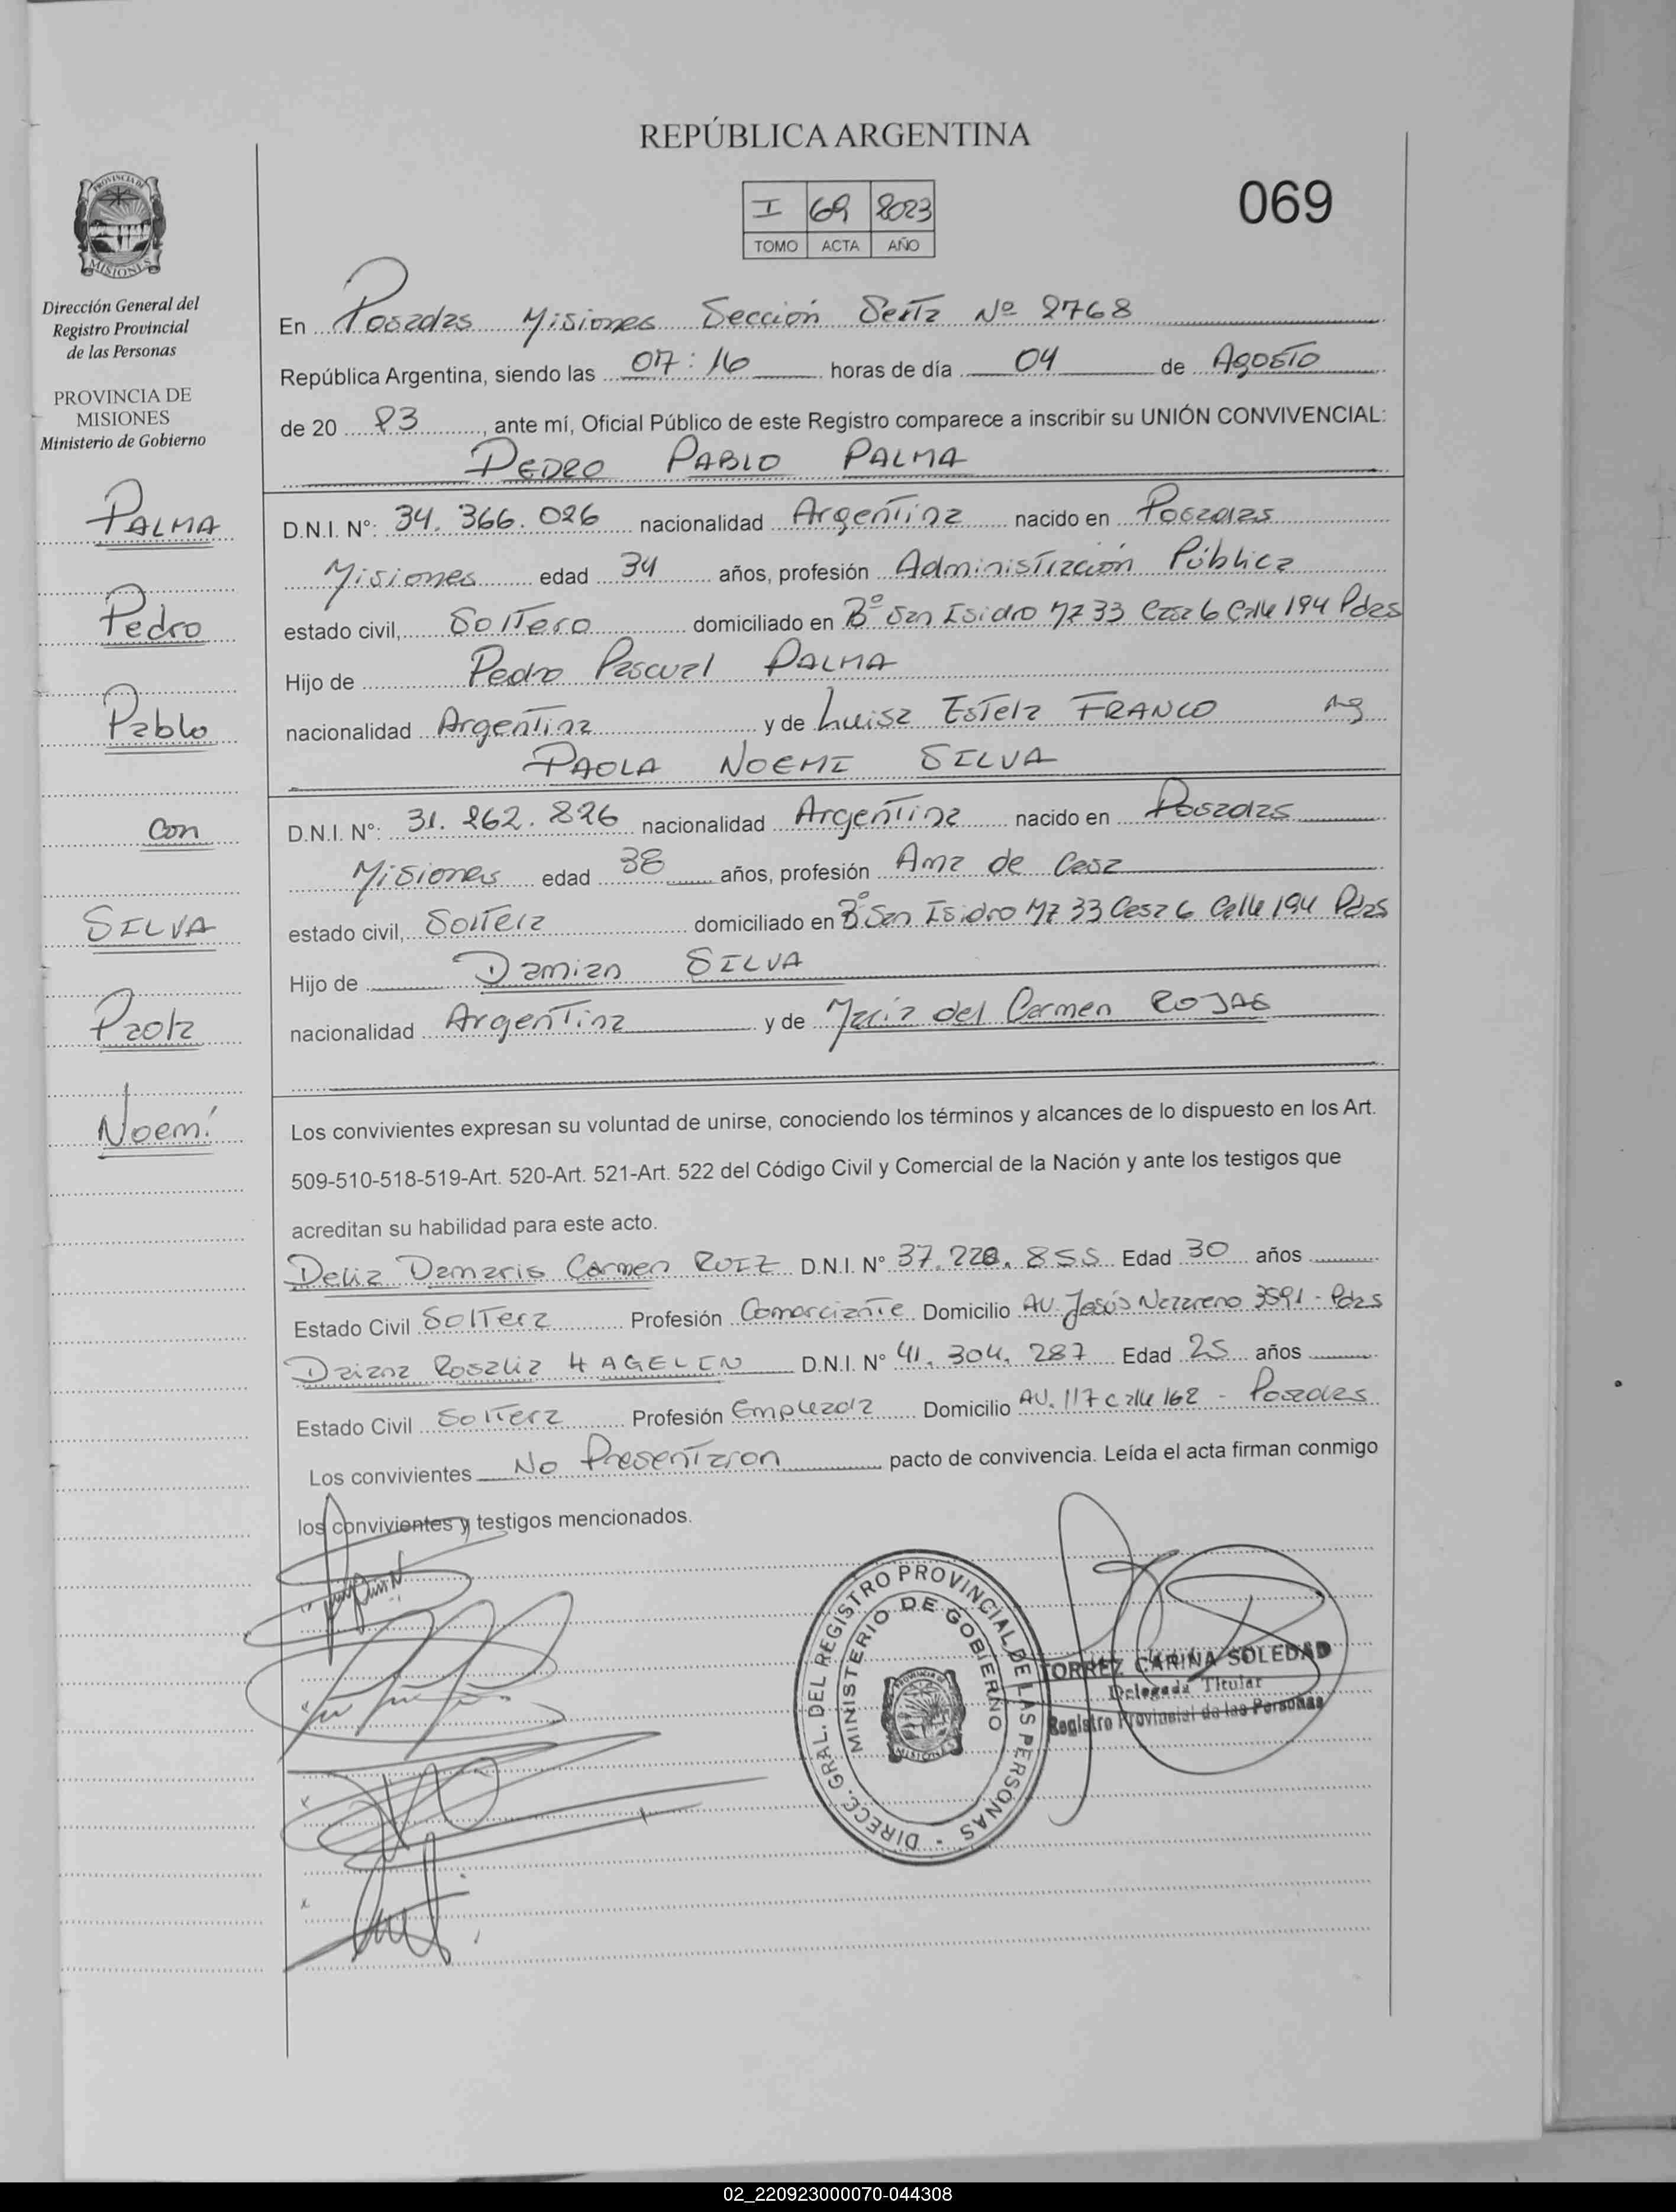 REPÚBLICA ARGENTINA
069
I 69 2023
TOMO ACTA AÑO
PROVINCIA DE
MISIONES
Dirección General del
Registro Provincial
de las Personas
PROVINCIA DE
MISIONES
Ministerio de Gobierno
PALMA
Pedro
Pablo
con
SILVA
Paola
Noemí
En Posadas Misiones Sección Sexta Nº 2768
República Argentina, siendo las 07:16 horas de día 04 de Agosto
de 20 23, ante mí, Oficial Público de este Registro comparece a inscribir su UNIÓN CONVIVENCIAL:
PEDRO PABLO PALMA
D.N.I. Nº: 34.366.026 nacionalidad Argentina nacido en Posadas
Misiones edad 34 años, profesión Administración Pública
estado civil, Soltero domiciliado en Bº San Isidro Mz 33 Casa 6 Calle 194 Pdas
Hijo de Pedro Pascual PALMA
nacionalidad Argentina y de Luisa Estela FRANCO Arg
PAOLA NOEMI SILVA
D.N.I. Nº: 31.262.826 nacionalidad Argentina nacido en Posadas
Misiones edad 38 años, profesión Ama de Casa
estado civil, Soltera domiciliado en Bº San Isidro Mz 33 Casa 6 Calle 194 Pdas
Hijo de Damian SILVA
nacionalidad Argentina y de María del Carmen ROJAS
Los convivientes expresan su voluntad de unirse, conociendo los términos y alcances de lo dispuesto en los Art.
509-510-518-519-Art. 520-Art. 521-Art. 522 del Código Civil y Comercial de la Nación y ante los testigos que
acreditan su habilidad para este acto.
Delia Damaris Carmen RUIZ D.N.I. Nº 37.220.855 Edad 30 años
Estado Civil Soltera Profesión Comerciante Domicilio AV. Jesús Nazareno 3591 - Pdas
Daiana Rosalia HAGELIN D.N.I. Nº 41.304.287 Edad 25 años
Estado Civil Soltera Profesión Empleada Domicilio AV. 117 calle 162 - Posadas
Los convivientes No Presentaron pacto de convivencia. Leída el acta firman conmigo
los convivientes y testigos mencionados.
DIRECC. GRAL. DEL REGISTRO PROVINCIAL DE LAS PERSONAS -
MINISTERIO DE GOBIERNO
PROVINCIA DE
MISIONES
TORREZ CARINA SOLEDAD
Delegada Titular
Registro Provincial de las Personas
02_220923000070-044308